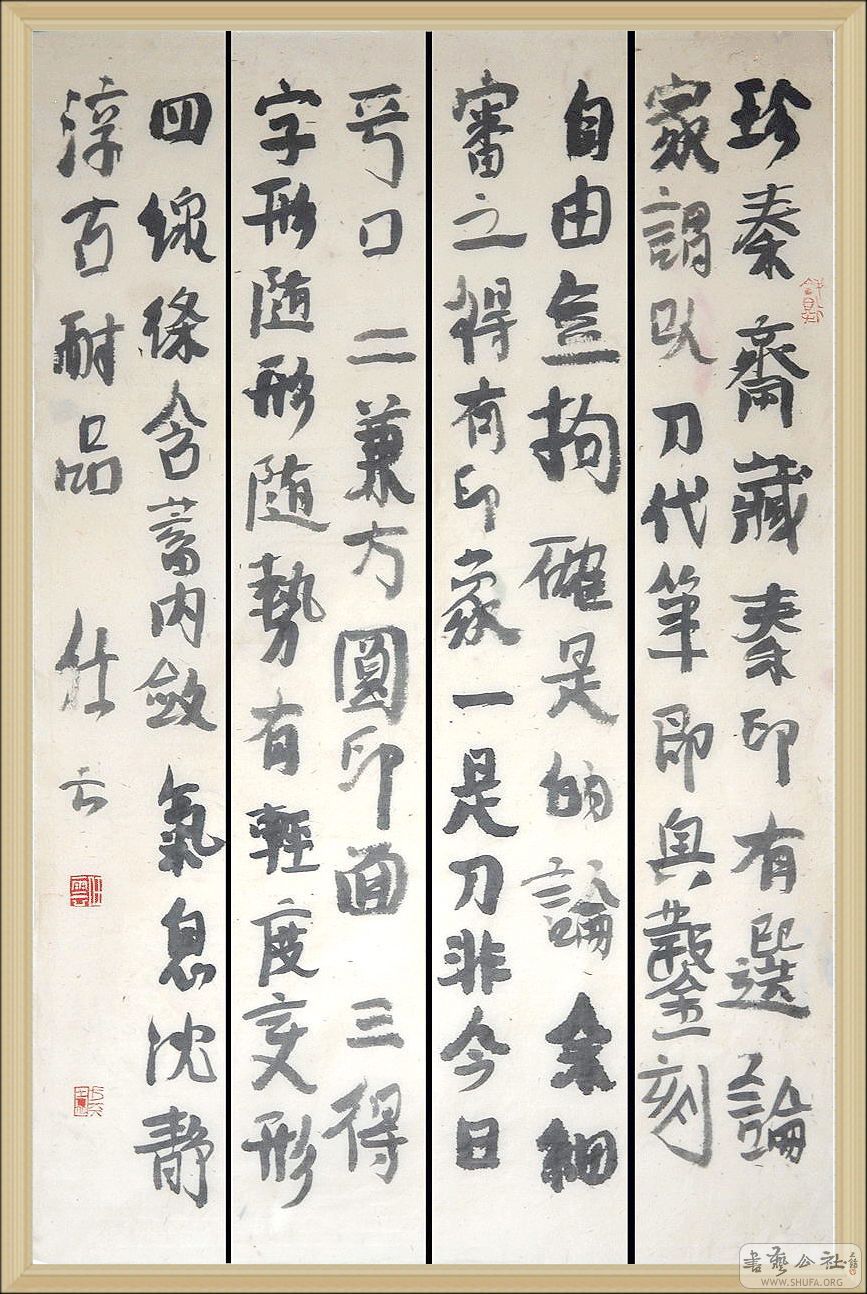 珍秦齋藏秦印有選論
家謂以刀代筆即興鑿刻
自由無拘確是的論余細
審之得有印象一是刀非今日
口二兼方圓印面三得
字形隨形隨勢有輕度變形
四線條含蓄內斂氣息沈靜
淳古耐品仕云
書藝公社
WWW.SHUFA.ORG